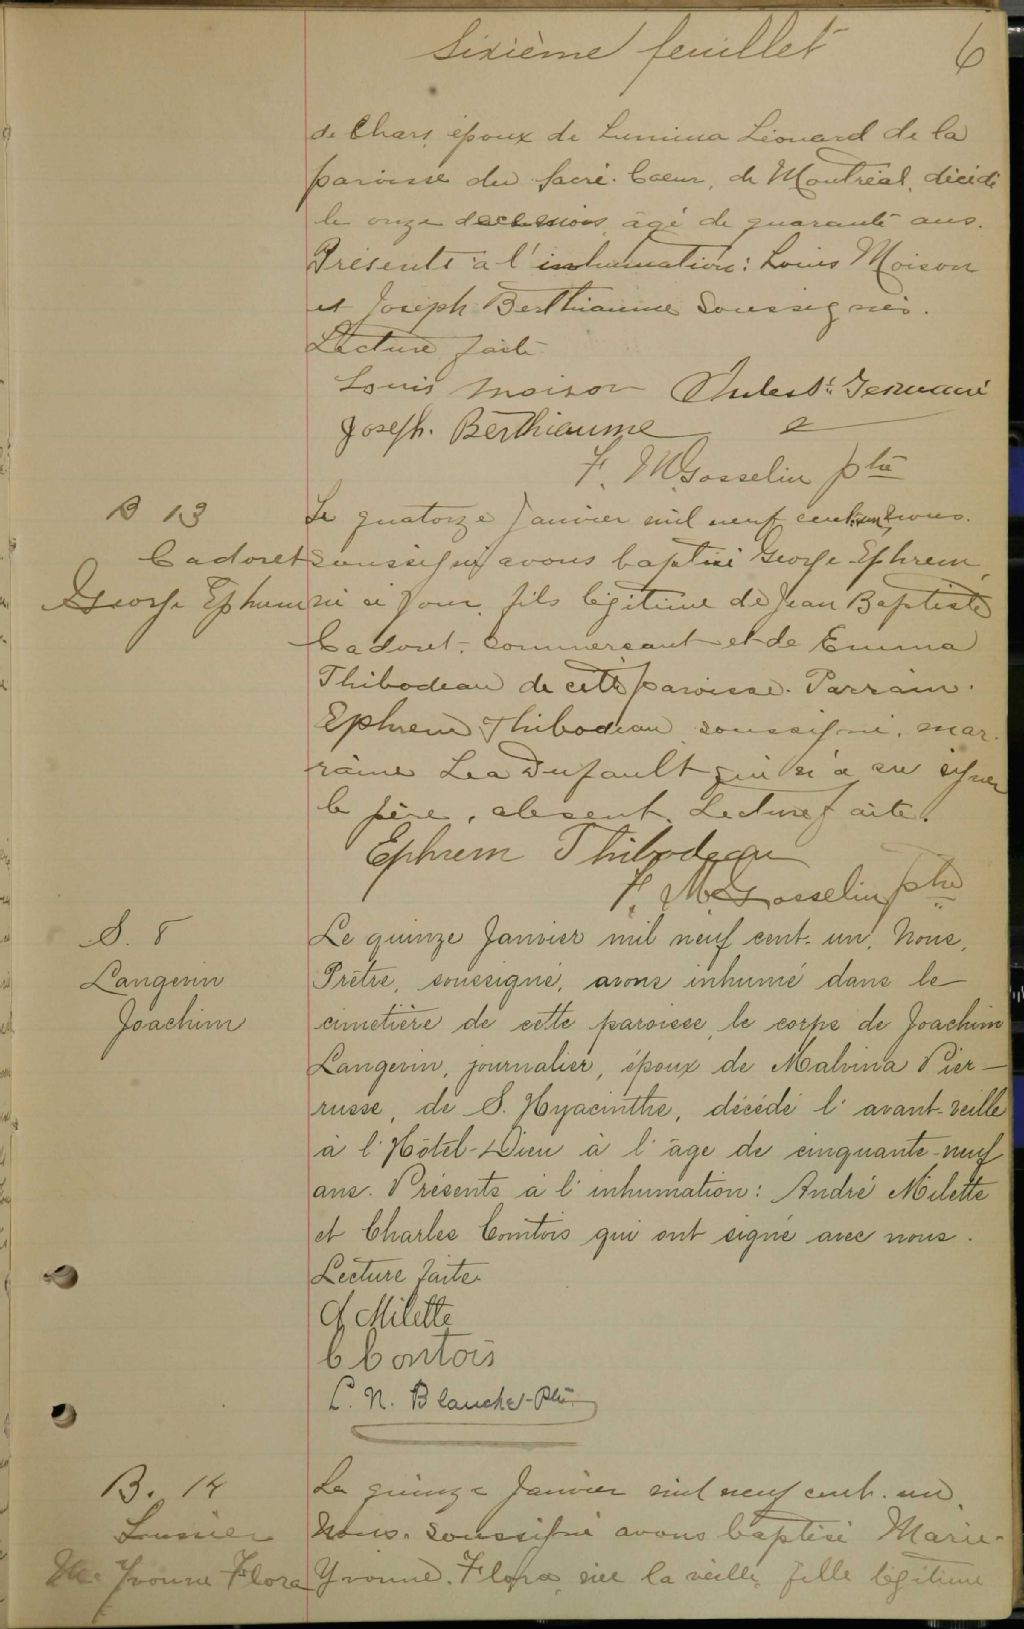 Sixième feuillet 6
de Chars, époux de Lumina Léonard de la
paroisse du Sacré-Coeur, de Montréal, décédé
le onze de ce mois, âgé de quarante ans.
Présents à l'inhumation: Louis Moison
et Joseph Berthiaume soussignés.
Lecture faite
Louis Moison St Germain
Joseph. Berthiaume
F. M. Gosselin ptre
B 13
Cadoret
George Ephrem
Le quatorze Janvier mil neuf cent un, nous.
soussigné avons baptisé George-Ephrem,
né ce jour, fils légitime de Jean Baptiste
Cadoret, commercant et de Emma
Thibodeau de cette paroisse. Parrain.
Ephrem Thibodeau soussigné, mar-
raine Lea Dufault qui n'a su signer
le père, absent. Lecture faite.
Ephrem Thibodeau
F. M. Gosselin ptre
S. 8
Langevin
Joachim
Le quinze Janvier mil neuf cent-un, Nous,
Prêtre, soussigné, avons inhumé dans le
cimetière de cette paroisse, le corps de Joachim
Langevin, journalier, époux de Malvina Pier-
russe, de S. Hyacinthe, décédé l'avant-veille
à l'Hôtel-Dieu à l'âge de cinquante-neuf
ans. Présents à l'inhumation: André Milette
et Charles Comtois qui ont signé avec nous.
Lecture faite.
A Milette
C Contois
L. N. Blanchet-Ptre
B. 14
Lussier
Me Yvonne Flora
Le quinze Janvier mil neuf cent-un,
Nous, soussigné avons baptisé Marie-
Yvonne-Flora, née la veille, fille légitime